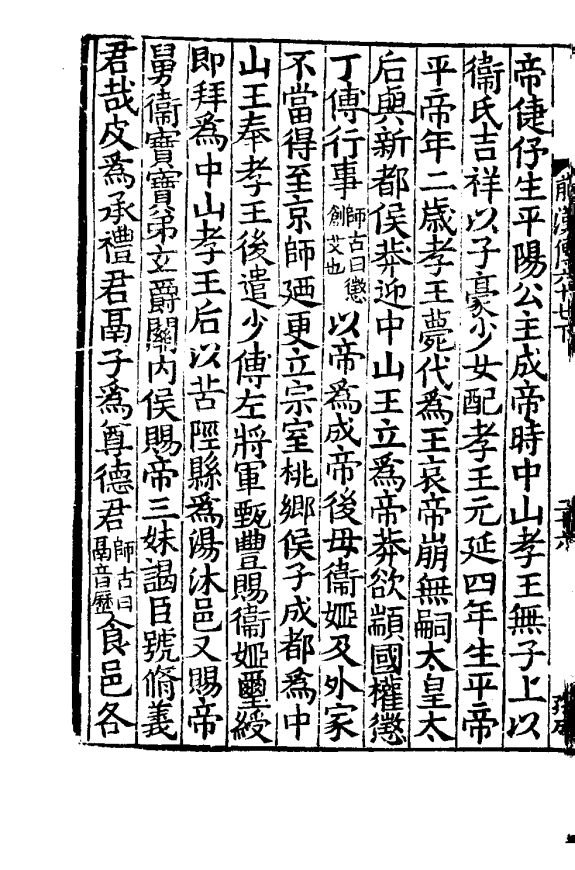 前漢傳六十七下
帝倢伃生平陽公主成帝時中山孝王無子上以
衞氏吉祥以子豪少女配孝王元延四年生平帝
平帝年二歳孝王薨代爲王哀帝崩無嗣太皇太
后與新都侯莽迎中山王立爲帝莽欲顓國權懲
丁傅行事師古曰懲創艾也以帝爲成帝後母衞姬及外家
不當得至京師廼更立宗室桃鄉侯子成都爲中
山王奉孝王後遣少傅左將軍甄豐賜衞姬璽綬
即拜爲中山孝王后以苦陘縣爲湯沐邑又賜帝
舅衞寶寶弟玄爵關内侯賜帝三妹謁臣號脩義
君哉皮爲承禮君鬲子爲尊德君師古曰鬲音歷食邑各